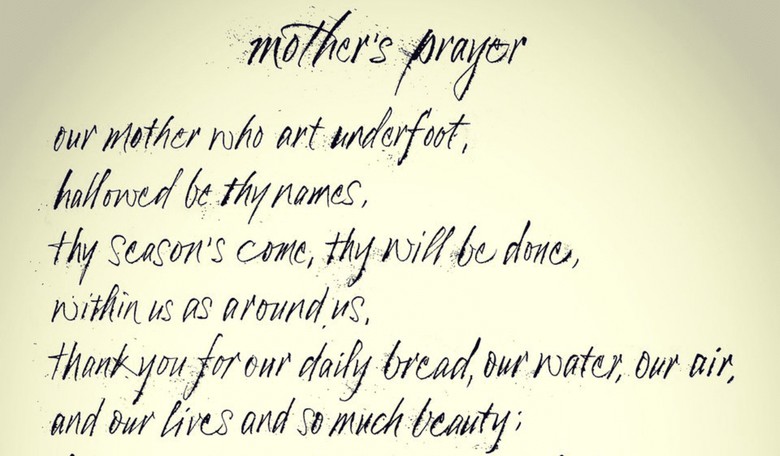 mother's prayer
our mother who art underfoot,
hallowed be thy names,
thy season's come, thy will be done,
within us as around us,
thank you for our daily bread, our water, our air,
and our lives and so much beauty;